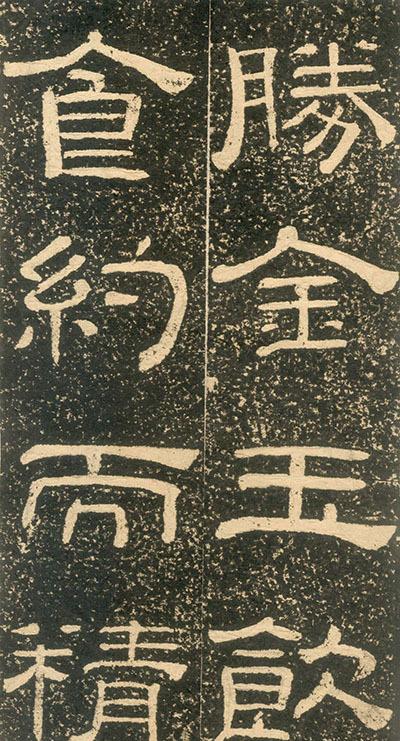 勝金玉飲
食約而積